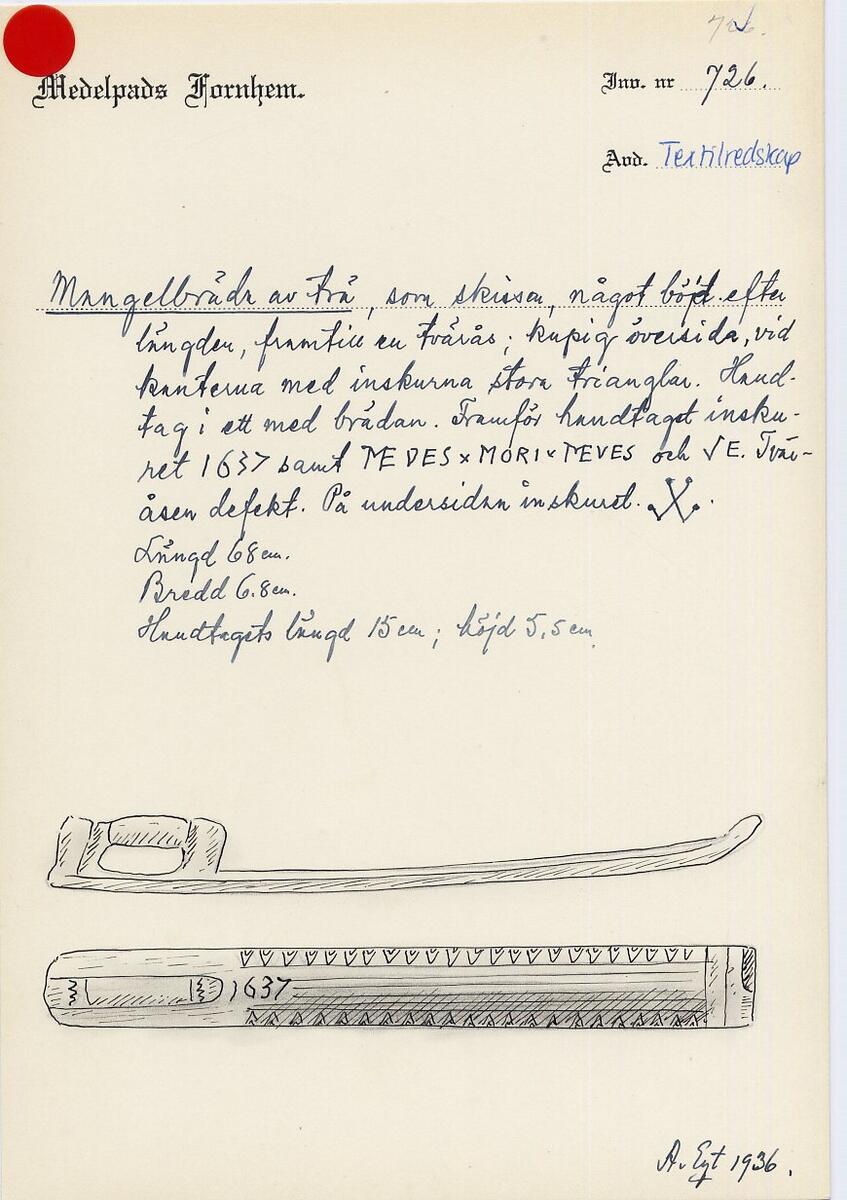 726.
Medelpads Fornhem.
Inv. nr 726.
Avd. Textilredskap
Mangelbräda av trä, som skissen, något böjd efter
längden, framtill en tvärås; kupig översida, vid
kanterna med inskurna stora trianglar. Hand-
tag i ett med brädan. Framför handtaget insku-
ret 1637 samt MEDES x MORI x MEVES och VE. Tvär-
åsen defekt. På undersidan inskuret.
Längd 68 cm.
Bredd 6.8 cm.
Handtagets längd 15 cm; höjd 5,5 cm.
1637
A. Eyt 1936.